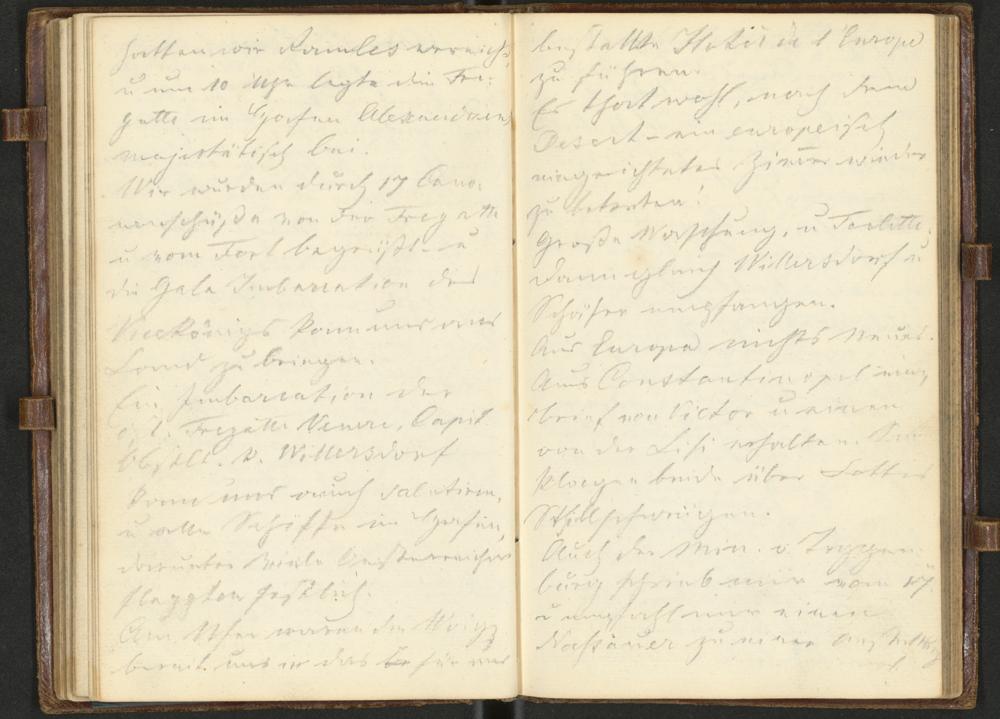 hatten wir Ramles erreicht,
u um 10 Uhr legte die Fre-
gatte im Hafen Alexandriens
majestätisch bei.
Wir wurden durch 17 Cano-
nenschüße von der Fregatte
u vom Fort begrüßt - u
die Gala Imbarcation des
Vicekönigs kam uns ans
Land zu bringen.
Ein Imbarcation der
Fregatte Venere, Capit
Obstlt. v. Willersdorf
kam uns auch salutiren,
u alle Schiffe im Hafen,
darunter viele Oesterreicher
flaggten festlich.
Am Ufer waren die Wägen
bereit uns in das für uns
bestellte Hotel de l'Europe
zu führen.
Es that wohl, nach dem
Desert - ein europeisch
eingerichtetes Zimmer wieder
zu betreten!
Große Waschung, u Toilette.
dann gleich Willersdorf u
Schäfer empfangen.
Aus Europa nichts Neues.
Aus Constantinopel einen
Brief von Victor u einen
von der Lisi erhalten.
klagen beide über
Stillschweigen.
Auch der Min. v.
burg schrieb mir vom 17
u empfahl mir einen
Naßauer zu einer